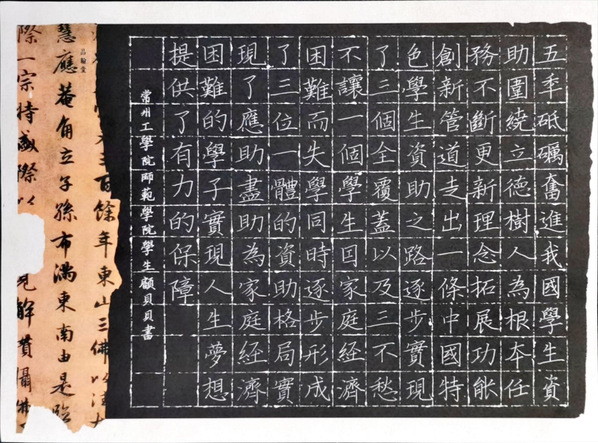 五年砥礪奮進我國學生資
助圍繞立德樹人為根本任
務不斷更新理念拓展功能
創新管道走出一條中國特
色學生資助之路逐步實現
了三個全覆蓋以及三不愁
不讓一個學生因家庭經濟
困難而失學同時逐步形成
了三位一體的資助格局實
現了應助盡助為家庭經濟
困難的學子實現人生夢想
提供了有力的保障
常州工學院師範學院學生顧貝貝書
三百餘年東山三佛以法
品翰堂
慧應菴角立子孫布滿東南由是臨
際一宗特盛際以 見解貫攝佛